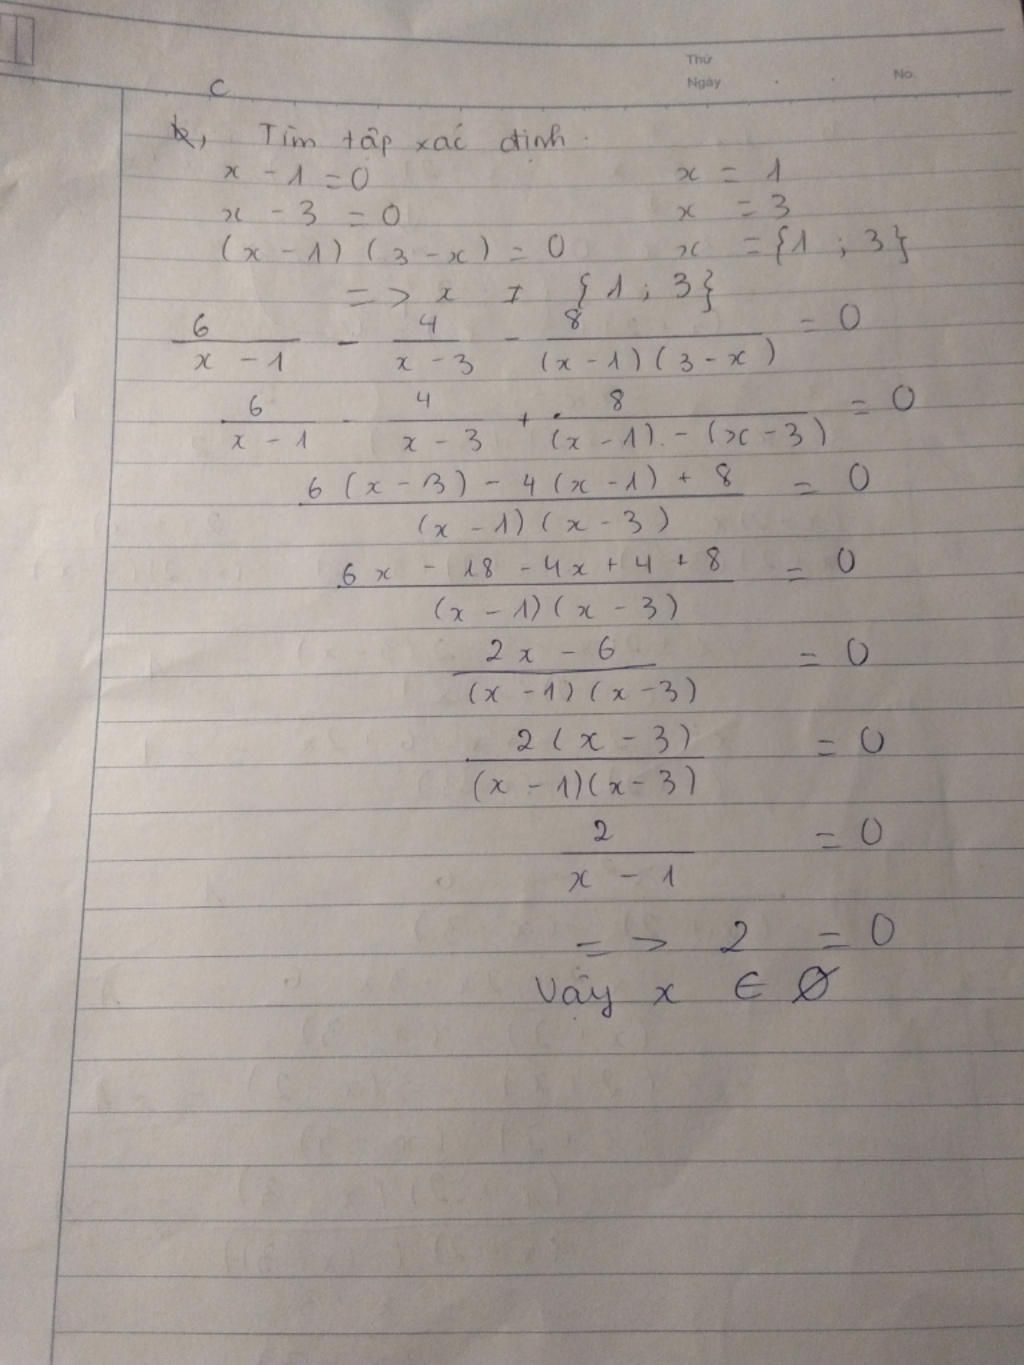 Thứ
Ngày No.
C
b, Tìm tập xác định.
x - 1 = 0 x = 1
x - 3 = 0 x = 3
(x - 1) (3 - x) = 0 x = {1 ; 3}
=> x ≠ {1 ; 3}
6/(x - 1) - 4/(x - 3) - 8/((x - 1)(3 - x)) = 0
6/(x - 1) - 4/(x - 3) + 8/((x - 1). - (x - 3)) = 0
(6(x - 3) - 4(x - 1) + 8)/((x - 1)(x - 3)) = 0
(6x - 18 - 4x + 4 + 8)/((x - 1)(x - 3)) = 0
(2x - 6)/((x - 1)(x - 3)) = 0
(2(x - 3))/((x - 1)(x - 3)) = 0
2/(x - 1) = 0
=> 2 = 0
Vậy x ∈ ∅